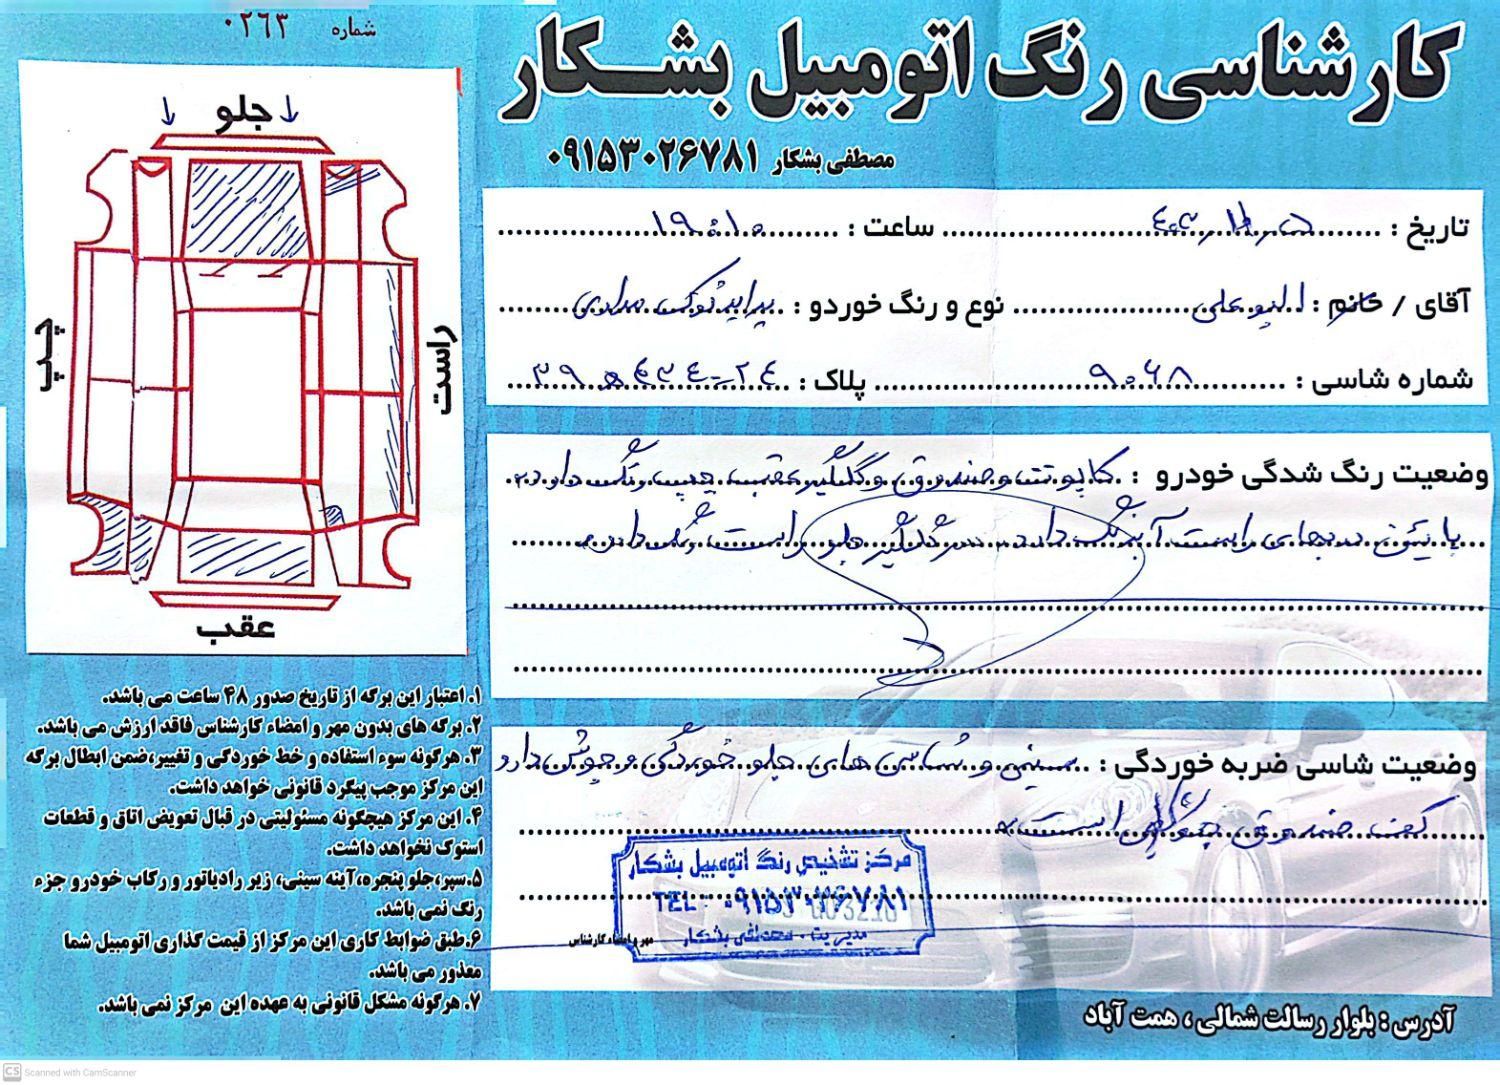 شماره ۰۲۶۳
کارشناسی رنگ اتومبیل بشکار
مصطفی بشکار ۰۹۱۵۳۰۲۶۷۸۱
تاریخ : ساعت : ۱۹:۱۰
آقای / خانم : نوع و رنگ خوردو : پراید نوک مدادی
شماره شاسی : ۹۰۶۸ پلاک :
وضعیت رنگ شدگی خودرو : کاپوت و صندوق و گلگیر عقب چپ رنگ دارد
پایین دربهای راست آبرنگ دارد سر گلگیر جلو راست رنگ دارد
وضعیت شاسی ضربه خوردگی : سینی و شاسی های جلو خوردگی و جوش دارد
کف صندوق چروکی است
مرکز تشخیص رنگ اتومبیل بشکار
TEL : ۰۹۱۵۳۰۲۶۷۸۱
مدیریت : مصطفی بشکار
مهر و امضاء کارشناس
آدرس : بلوار رسالت شمالی ، همت آباد
جلو
چپ
راست
عقب
۱. اعتبار این برگه از تاریخ صدور ۴۸ ساعت می باشد.
۲. برگه های بدون مهر و امضاء کارشناس فاقد ارزش می باشد.
۳. هرگونه سوء استفاده و خط خوردگی و تغییر،ضمن ابطال برگه
این مرکز موجب پیگرد قانونی خواهد داشت.
۴. این مرکز هیچگونه مسئولیتی در قبال تعویض اتاق و قطعات
استوک نخواهد داشت.
۵.سپر،جلو پنجره،آینه سینی، زیر رادیاتور و رکاب خودرو جزء
رنگ نمی باشد.
۶.طبق ضوابط کاری این مرکز از قیمت گذاری اتومبیل شما
معذور می باشد.
۷. هرگونه مشکل قانونی به عهده این مرکز نمی باشد.
CS Scanned with CamScanner